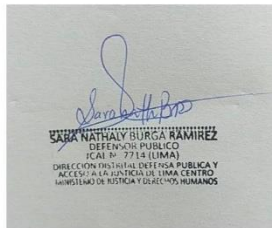 SARA NATHALY BURGA RAMIREZ
DEFENSOR PUBLICO
ICAL Nº 7714 (LIMA)
DIRECCION DISTRITAL DEFENSA PUBLICA Y
ACCESO A LA JUSTICIA DE LIMA CENTRO
MINISTERIO DE JUSTICIA Y DERECHOS HUMANOS